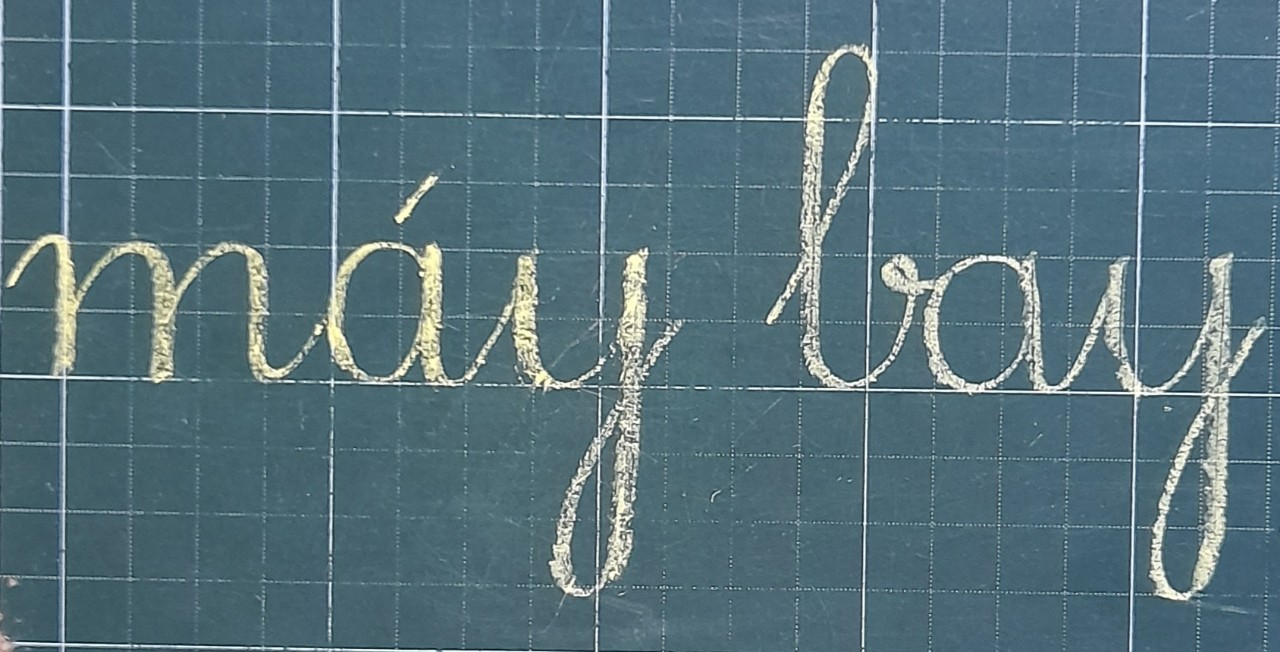 máy bay